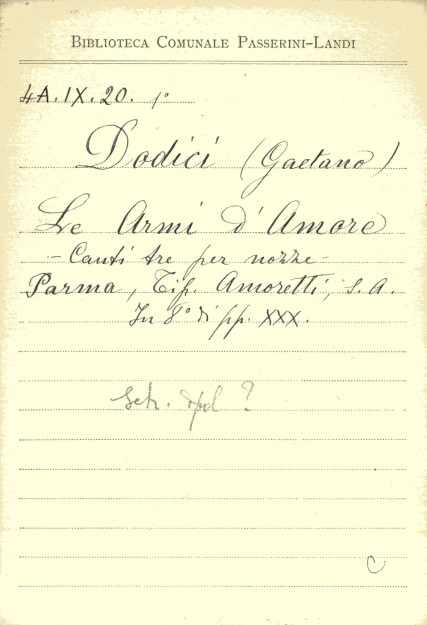 BIBLIOTECA COMUNALE PASSERINI-LANDI
4A.IX.20. 1°
Dodici (Gaetano)
Le Armi d'Amore
- Canti tre per nozze -
Parma, Tip. Amoretti, s. a.
In 8° di pp. XXX.
Sch. dpl ?
C